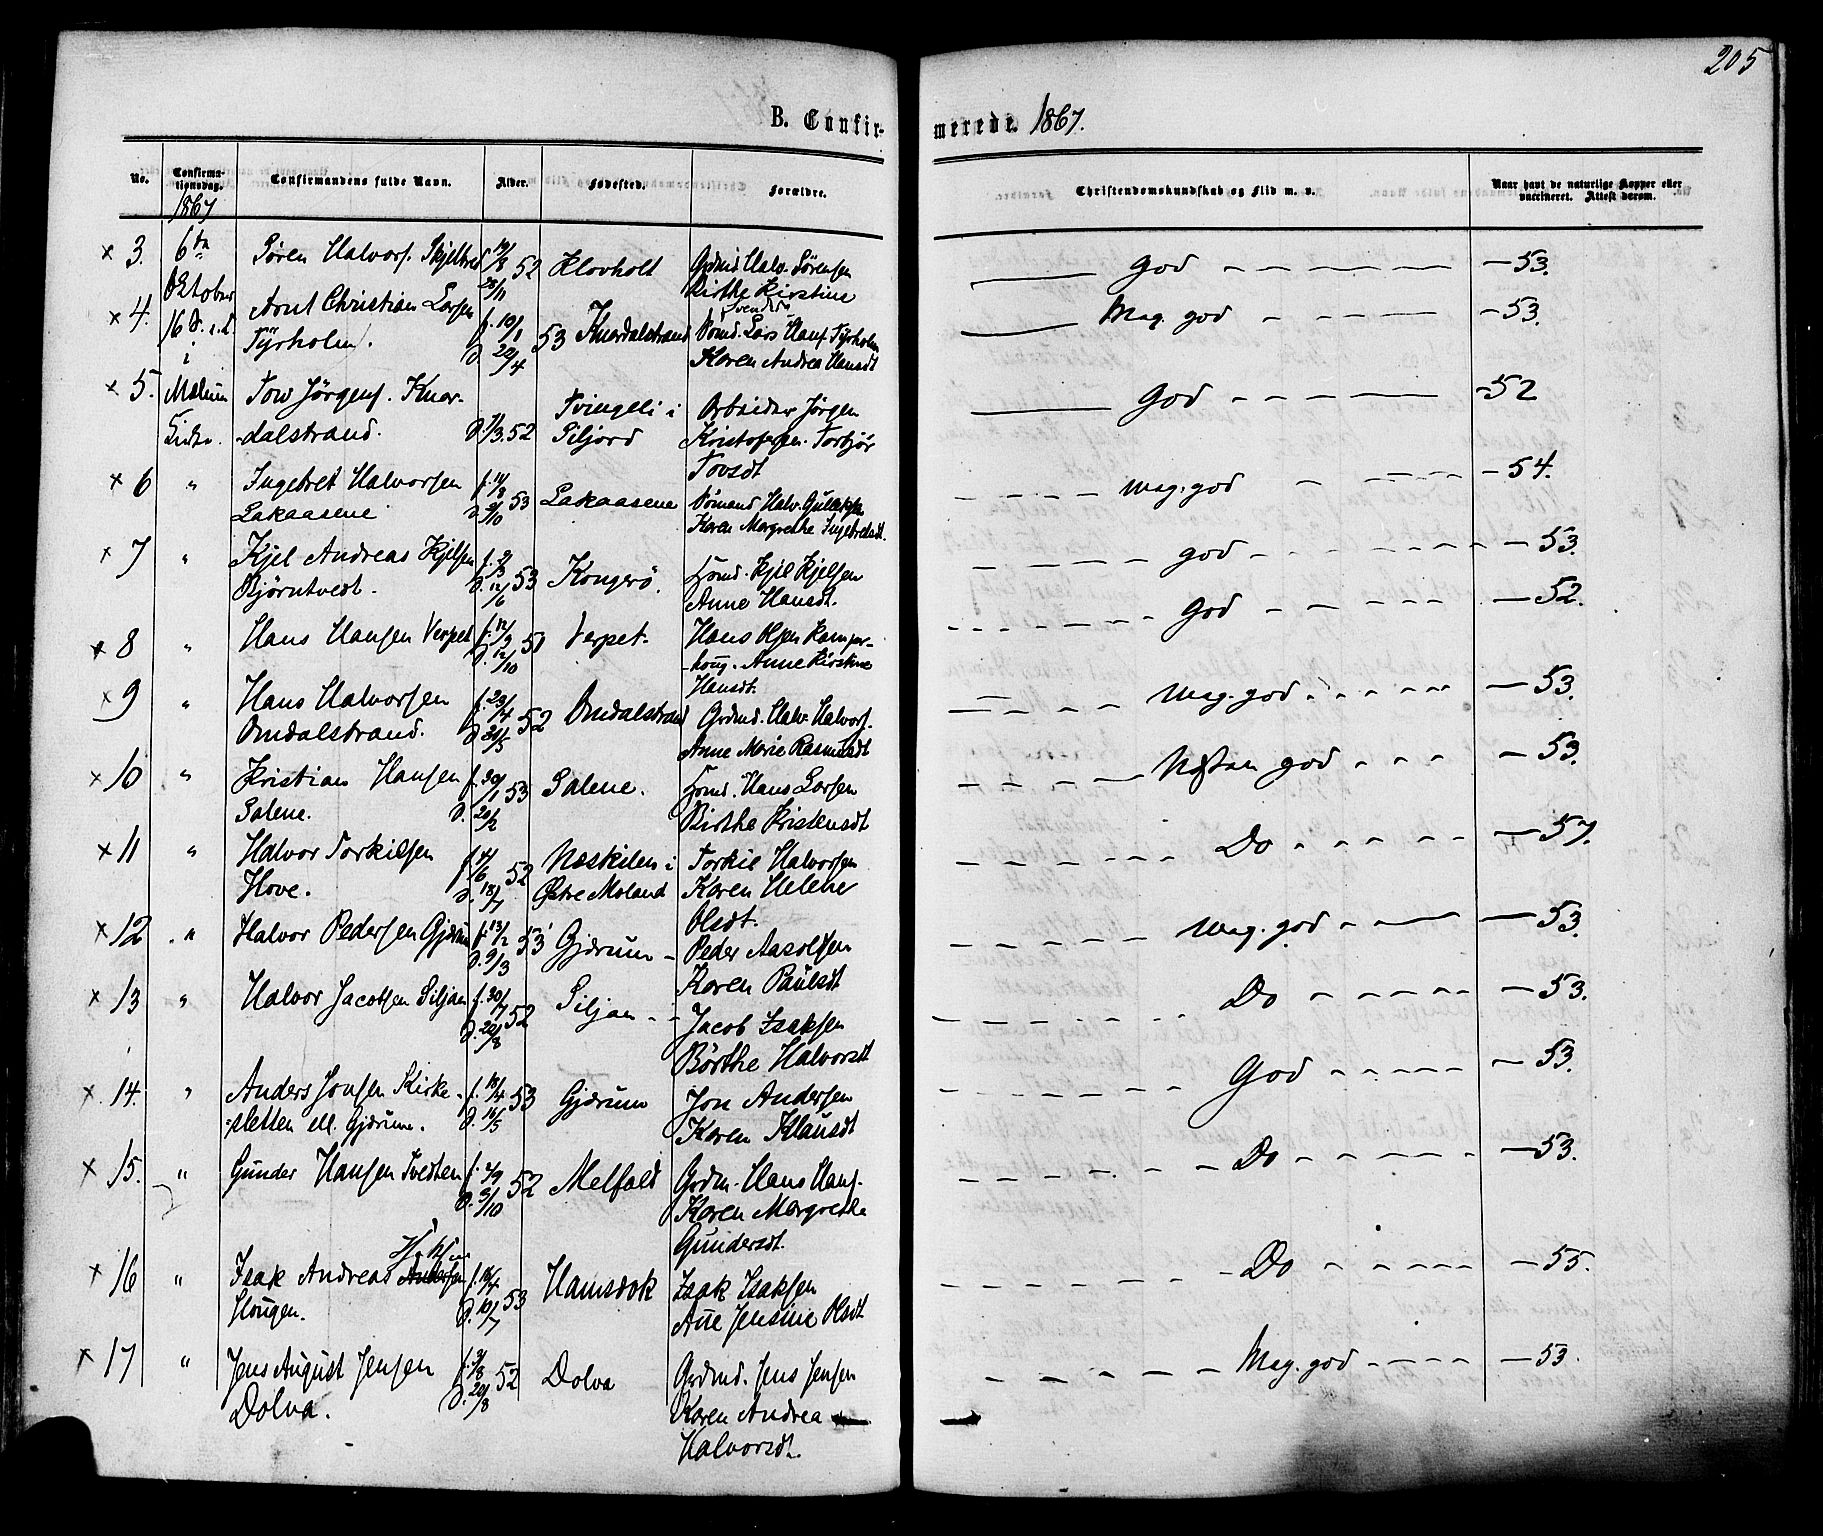 205
B. Confirmerede. 1867.
No. Confirmationsdag. Confirmandens fulde Navn. Alder. Fødested. Forældre. Christendomskundskab og Flid m. v. Naar havt de naturlige Kopper eller vaccineret. Attest derom.
1867
3. 6te Søren Halvors. f. 19/8 52 Klovholt Grdmd Halv. Sørensen God — 53.
Oktober 28/11 Birthe Kirstine
4. 16 S. e. T. Arnt Christian Larsen f. 10/1 53 Knardalstrand Lars Hans. Tyrholm Meg. god — 53.
i Tyrholm. d. 20/4 Karen Andrea Hansdt
5. Melum Tow Jörgens. Knar- Tvingeli i Arbeider Jörgen God — 52
Kirke. dalstrand. d. 1/3. 52 Siljord Kristofersen. Torbjör
Tovsdt
6 " Ingebret Halvorsen f. 11/8 53 Lakaasene Hömand Halv. Gullichsen meg. god — 54.
Lakaasene d. 2/10 Karen Margrethe Ingebretsdt.
7 " Kjel Andreas Kjelsen 53 Kongerö. Kjel Kjelsen god — 53.
Björntvedt. d. 12/6 Anne Hansdt.
8 " Hans Hansen Verpet f. 12/3 51 Verpet. Hans God — 52.
d. 12/10 -houg. Anne Kirstine
Hansdt.
9 " Hans Halvorsen f. 23/4 52 Omdalstrand Grdmd. Halv. Halvors. Meg. god — 53.
Omdalstrand. d. 31/5 Anne Marie Rasmusdt
10 " Kristian Hansen f. 30/1 53 Salene. Hans Larsen Næsten god — 53.
Salene. d. 20/2 Birthe Kristensdt
11 " Halvor Torkilsen f. 14/6 52 Næskilen i Torkil Halvorsen Do — 57.
Hove. d. 18/7 Østre Moland Karen Helene
Olsdt.
12 " Halvor Pedersen Gjærum f. 13/2 53 Gjærum Peder Aasoldsen Meg. god — 53.
d. 9/3 Karen Paulsdt
13 " Halvor Jacobsen Siljan f. 30/7 52 Siljan Jacob Isaksen Do — 53.
d. 22/8 Börthe Halvorsdt
14. " Anders Jonsen Kirke- f. 18/4 53 Gjærum Jon Andersen God — 53.
sletten ell. Gjærum. d. 16/5 Karen Klausdt
15. " Gunder Hansen Tvedten f. 4/9 52 Melfald Grdm. Hans Hans. Do — 53.
d. 3/10 Karen Margrethe
Gundersdt.
16 " Isak Andreas Andersen Isaksen 53 Hamsdok Isak Isaksen Do — 55.
Hougen. d. 10/7 Ane Jensine Olsdt
17 " Jens August Jensen 52 Dolva Grdmd. Jens Jensen Meg. god — 53.
Dolva. d. 29/8 Karen Andrea
Halvorsdt.